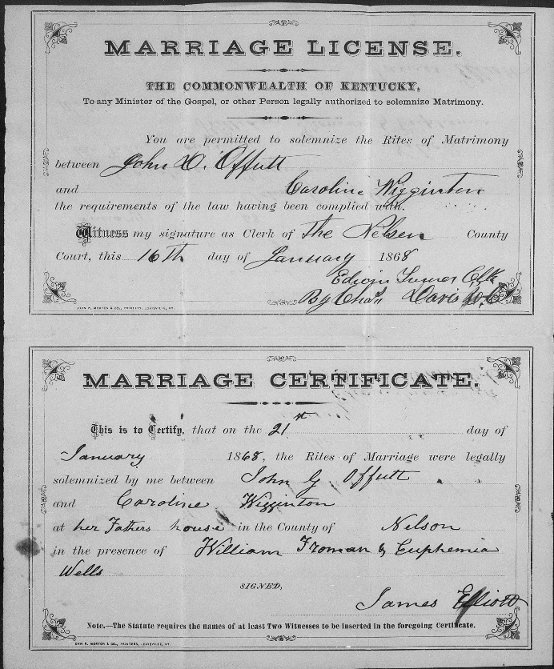 MARRIAGE LICENSE.
THE COMMONWEALTH OF KENTUCKY,
To any Minister of the Gospel, or other Person legally authorized to solemnize Matrimony.
You are permitted to solemnize the Rites of Matrimony
between John D. Offutt
and Caroline Wigginton
the requirements of the law having been complied with.
Witness my signature as Clerk of The Nelson County
Court, this 16th day of January 1868
Edwin Turner Clk
By Chas Davis D.C.
MARRIAGE CERTIFICATE.
This is to Certify, that on the 21st day of
January 1868, the Rites of Marriage were legally
solemnized by me between John G Offutt
and Caroline Wigginton
at her Fathers house in the County of Nelson
in the presence of William Froman & Euphemia
Wells
SIGNED,
James Elliott
Note.—The Statute requires the names of at least Two Witnesses to be inserted in the foregoing Certificate.